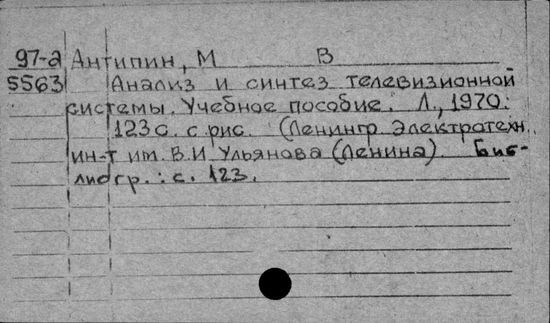 97-2 Антипин, М В
5563 Анализ и синтез телевизионной
системы. Учебное пособие. Л., 1970.
123 с. с рис. (Ленингр электротехн.
ин-т им. В.И Ульянова (Ленина). Биб-
лиогр.: с. 123.